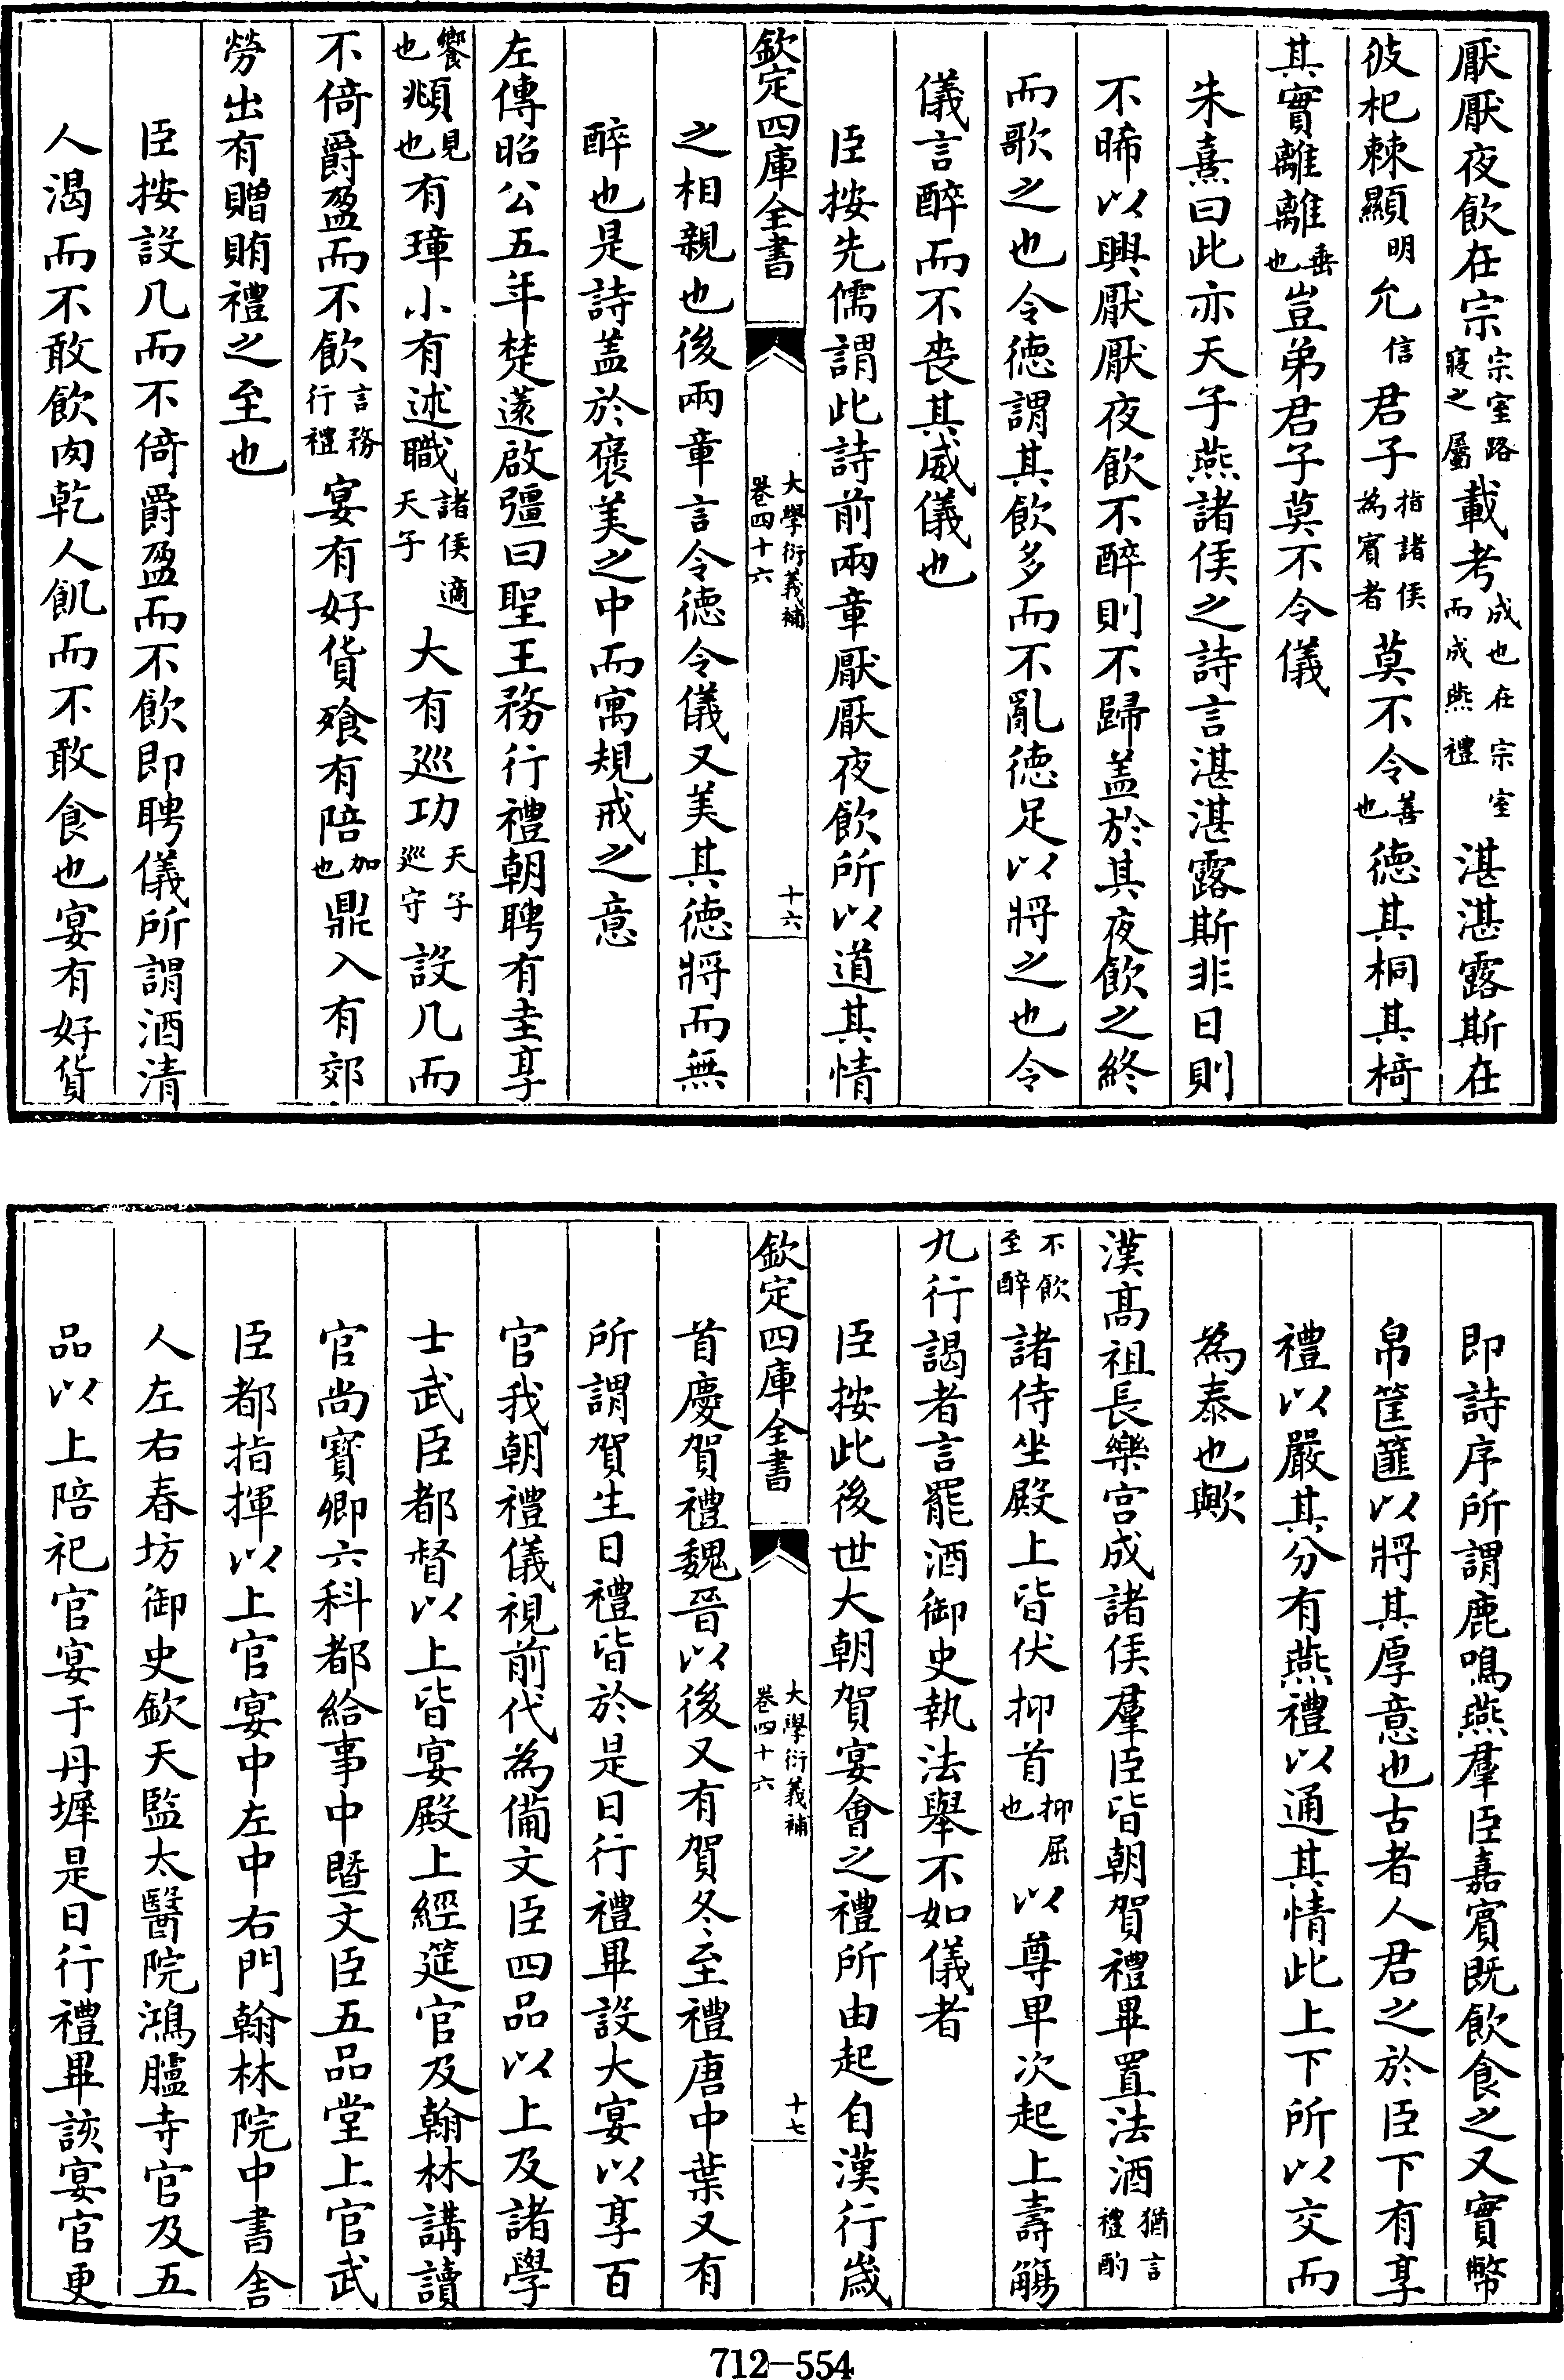 厭厭夜飲在宗宗室路寢之屬載考成也在宗室而成燕禮湛湛露斯在
彼杞棘顯明允信君子指諸侯為賓者莫不令善也徳其桐其椅
其實離離垂也豈弟君子莫不令儀
朱熹曰此亦天子燕諸侯之詩言湛湛露斯非日則
不晞以興厭厭夜飲不醉則不歸盖於其夜飲之終
而歌之也令徳謂其飲多而不亂徳足以將之也令
儀言醉而不喪其威儀也
臣按先儒謂此詩前兩章厭厭夜飲所以道其情
欽定四庫全書
大學衍義補
卷四十六
十六
之相親也後兩章言令徳令儀又美其徳將而無
醉也是詩盖於褒美之中而寓規戒之意
左傳昭公五年楚薳啟彊曰聖王務行禮朝聘有圭享
饗也頫見也有璋小有述職諸侯適天子大有巡功天子巡守設几而
不倚爵盈而不飲言務行禮宴有好貨飱有陪加也鼎入有郊
勞出有贈賄禮之至也
臣按設几而不倚爵盈而不飲即聘儀所謂酒清
人渴而不敢飲肉乾人飢而不敢食也宴有好貨
即詩序所謂鹿鳴燕羣臣嘉賓既飲食之又實幣
帛筐篚以將其厚意也古者人君之於臣下有享
禮以嚴其分有燕禮以通其情此上下所以交而
為泰也歟
漢髙祖長樂宫成諸侯羣臣皆朝賀禮畢置法酒猶言禮酌
不飲至醉諸侍坐殿上皆伏抑首抑屈也以尊卑次起上壽觴
九行謁者言罷酒御史執法舉不如儀者
臣按此後世大朝賀宴會之禮所由起自漢行嵗
欽定四庫全書
大學衍義補
卷四十六
十七
首慶賀禮魏晉以後又有賀冬至禮唐中葉又有
所謂賀生日禮皆於是日行禮畢設大宴以享百
官我朝禮儀視前代為備文臣四品以上及諸學
士武臣都督以上皆宴殿上經筵官及翰林講讀
官尚寳卿六科都給事中暨文臣五品堂上官武
臣都指揮以上官宴中左中右門翰林院中書舎
人左右春坊御史欽天監太醫院鴻臚寺官及五
品以上陪祀官宴于丹墀是日行禮畢該宴官更
712—554